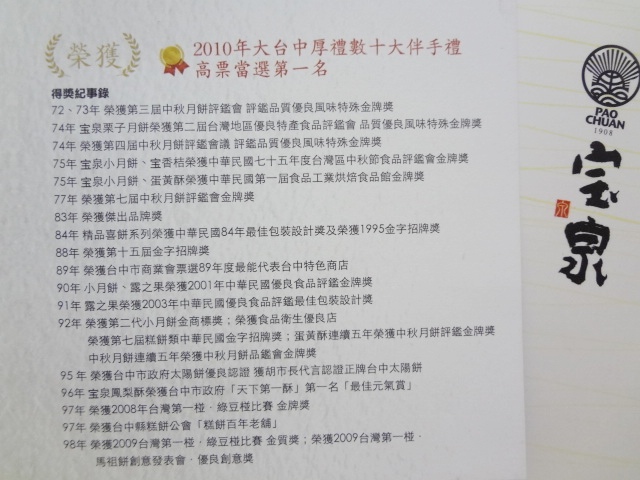 榮獲
2010年大台中厚禮數十大伴手禮
高票當選第一名
得獎紀事錄
72、73年 榮獲第三屆中秋月餅評鑑會 評鑑品質優良風味特殊金牌獎
74年 宝泉栗子月餅榮獲第二屆台灣地區優良特產食品評鑑會 品質優良風味特殊金牌獎
74年 榮獲第四屆中秋月餅評鑑會議 評鑑品質優良風味特殊金牌獎
75年 宝泉小月餅、宝香桔榮獲中華民國七十五年度台灣區中秋節食品評鑑會金牌獎
75年 宝泉小月餅、蛋黃酥榮獲中華民國第一屆食品工業烘焙食品館金牌獎
77年 榮獲第七屆中秋月餅評鑑會金牌獎
83年 榮獲傑出品牌獎
84年 精品喜餅系列榮獲中華民國84年最佳包裝設計獎及榮獲1995金字招牌獎
88年 榮獲第十五屆金字招牌獎
89年 榮獲台中市商業會票選89年度最能代表台中特色商店
90年 小月餅、露之果榮獲2001年中華民國優良食品評鑑金牌獎
91年 露之果榮獲2003年中華民國優良食品評鑑最佳包裝設計獎
92年 榮獲第二代小月餅金商標獎；榮獲食品衛生優良店
榮獲第七屆糕餅類中華民國金字招牌獎；蛋黃酥連續五年榮獲中秋月餅評鑑金牌獎
中秋月餅連續五年榮獲中秋月餅品鑑會金牌獎
95年 榮獲台中市政府太陽餅優良認證 獲胡市長代言認證正牌台中太陽餅
96年 宝泉鳳梨酥榮獲台中市政府「天下第一酥」第一名「最佳元氣賞」
97年 榮獲2008年台灣第一椪．綠豆椪比賽 金牌獎
97年 榮獲台中縣糕餅公會「糕餅百年老舖」
98年 榮獲2009台灣第一椪．綠豆椪比賽 金質獎；榮獲2009台灣第一椪．
馬祖餅創意發表會．優良創意獎
PAO
CHUAN
1908
宝泉